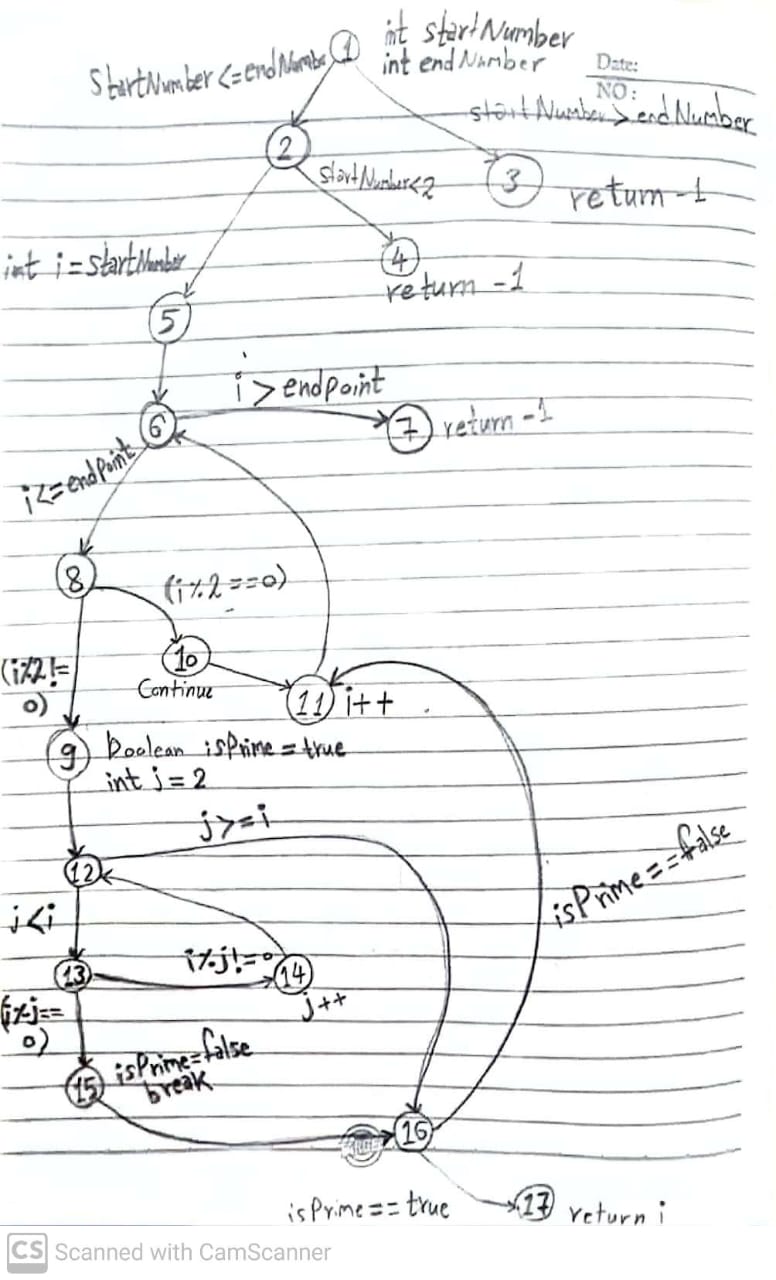 int startNumber
1
int endNumber
StartNumber <= endNumbe
Date:
NO:
startNumber > endNumber
2
startNumber<2
3
return -1
4
return -1
int i = startNumber
5
i > endpoint
6
7
return -1
i <= endpoint
8
(i%2==0)
10
Continue
(i%2!=
0)
11
i++
9
Boolean isPrime = true
int j = 2
j >= i
12
isPrime == false
j<i
13
i%j!=0
14
j++
(i%j==
0)
15
isPrime=false
break
16
isPrime == true
17
return i
CS Scanned with CamScanner